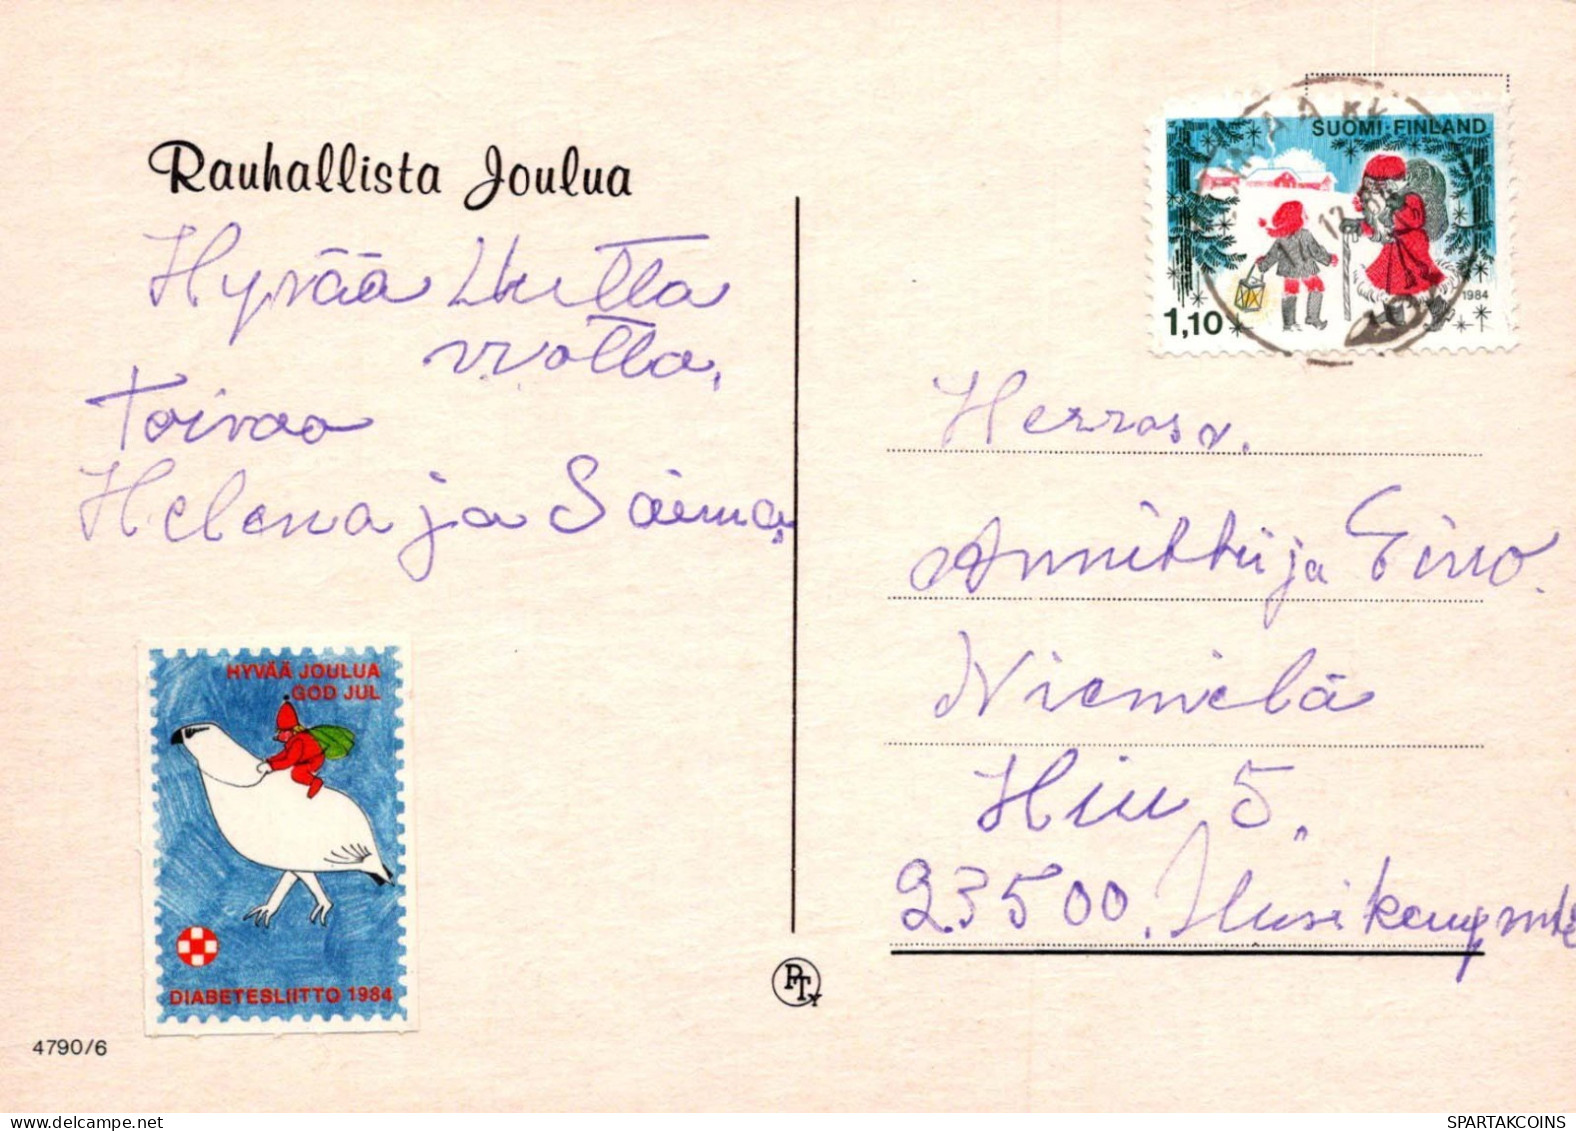 Rauhallista Joulua
Hyvää Uutta
vvotta.
Toivaa
Helena ja Saima
HYVÄÄ JOULUA
GOD JUL
DIABETESLIITTO 1984
4790/6
PTY
SUOMI-FINLAND
1984
1,10
Herrasv.
Annikki ja Eino.
Niemelä
Hiu 5.
23500. Uusikaupunki
SPARTAKCOINS